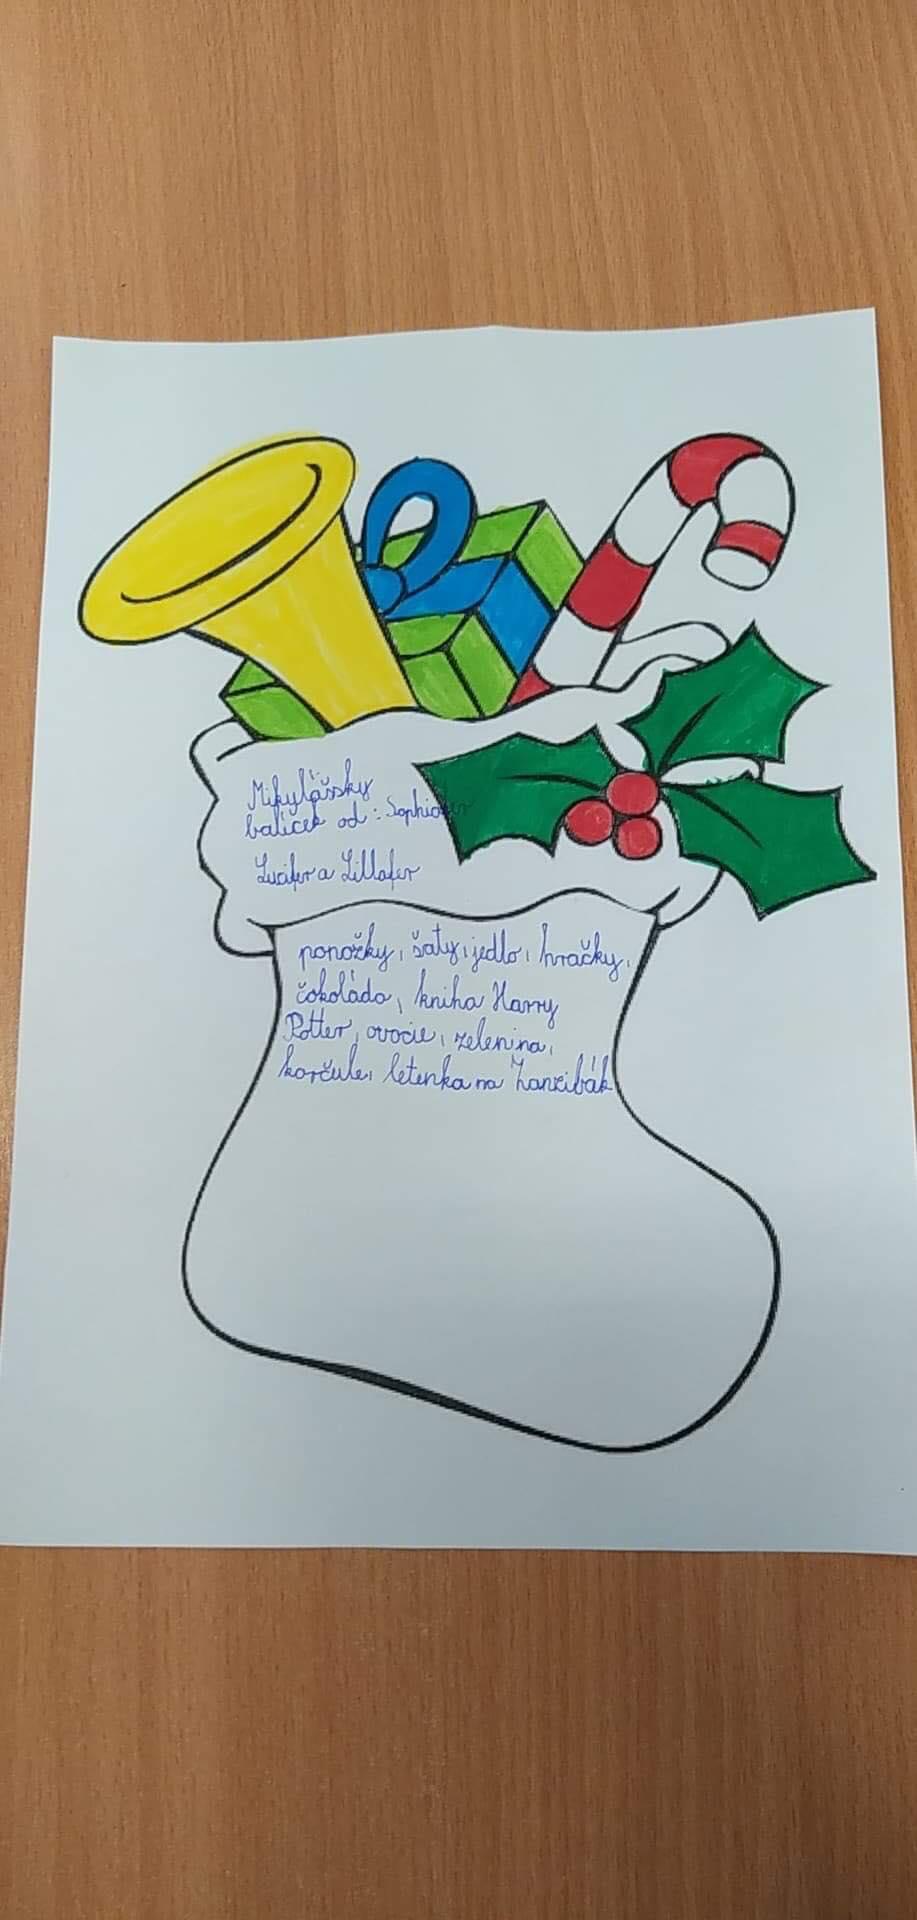 Mikulášsky
balíček od: Sophiafer
Lucifer a Lillafer
ponožky, šaty, jedlo, hračky,
čokoláda, kniha Harry
Potter, ovocie, zelenina,
korčule, letenka na Zanzibák